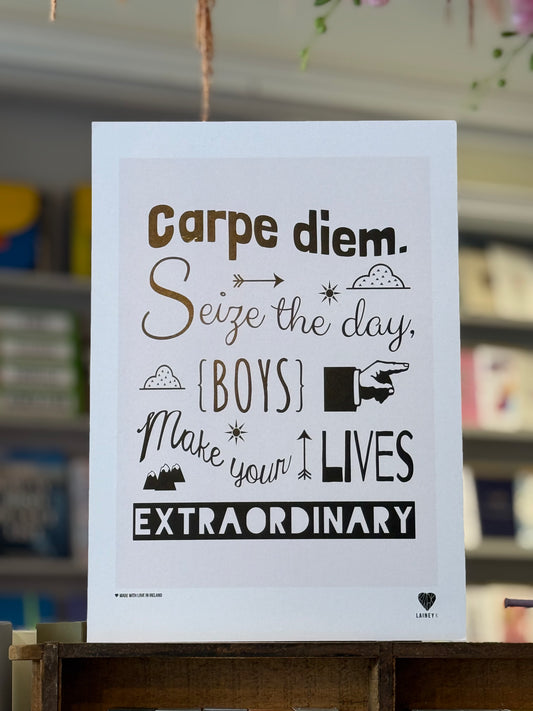 Carpe diem.
Seize the day,
{BOYS}
Make your LIVES
EXTRAORDINARY
MADE WITH LOVE IN IRELAND
LAINEY K